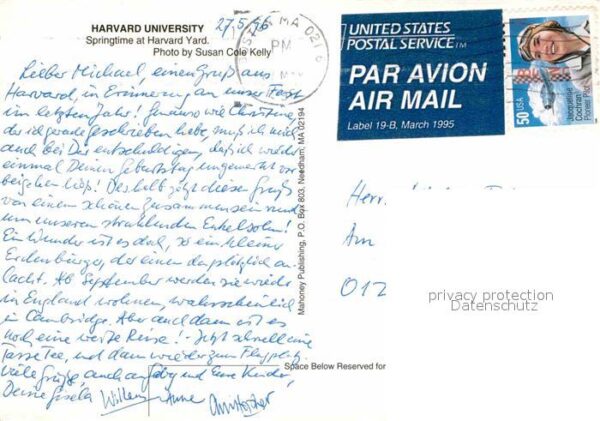 HARVARD UNIVERSITY
Springtime at Harvard Yard.
Photo by Susan Cole Kelly
27.5.96
MA 021
PM
MAY
UNITED STATES
POSTAL SERVICE TM
PAR AVION
AIR MAIL
Label 19-B, March 1995
50 USA
Jacqueline
Cochran
Pioneer Pilot
Lieber Michael, einen Gruß aus
Harvard, in Erinnerung an unser Fest
im letzten Jahr! Genauso wie Christine,
der ich gerade geschrieben habe, muß ich mich
auch bei Dir entschuldigen, daß ich wieder
einmal Deinen Geburtstag ungewürdigt vor
beigehen ließ! Deshalb jetzt diesen Gruß
von einem schönen Zusammensein rund
um unseren strahlenden Enkelsohn!
Ein Wunder ist es doch, so ein kleiner
Erdenbürger, der einen da plötzlich an-
lacht. Ab September werden sie wieder
in England wohnen, wahrscheinlich
in Cambridge. Aber auch dann ist es
noch eine weite Reise! - Jetzt schnell eine
Tasse Tee, und dann wieder zum Flugplatz.
Viele Grüße, auch an Gaby und Eure Kinder,
Deine Gisela Willem Anne Christopher
Mahoney Publishing, P.O. Box 803, Needham, MA 02194
Space Below Reserved for
Herr
Am
012
privacy protection
Datenschutz